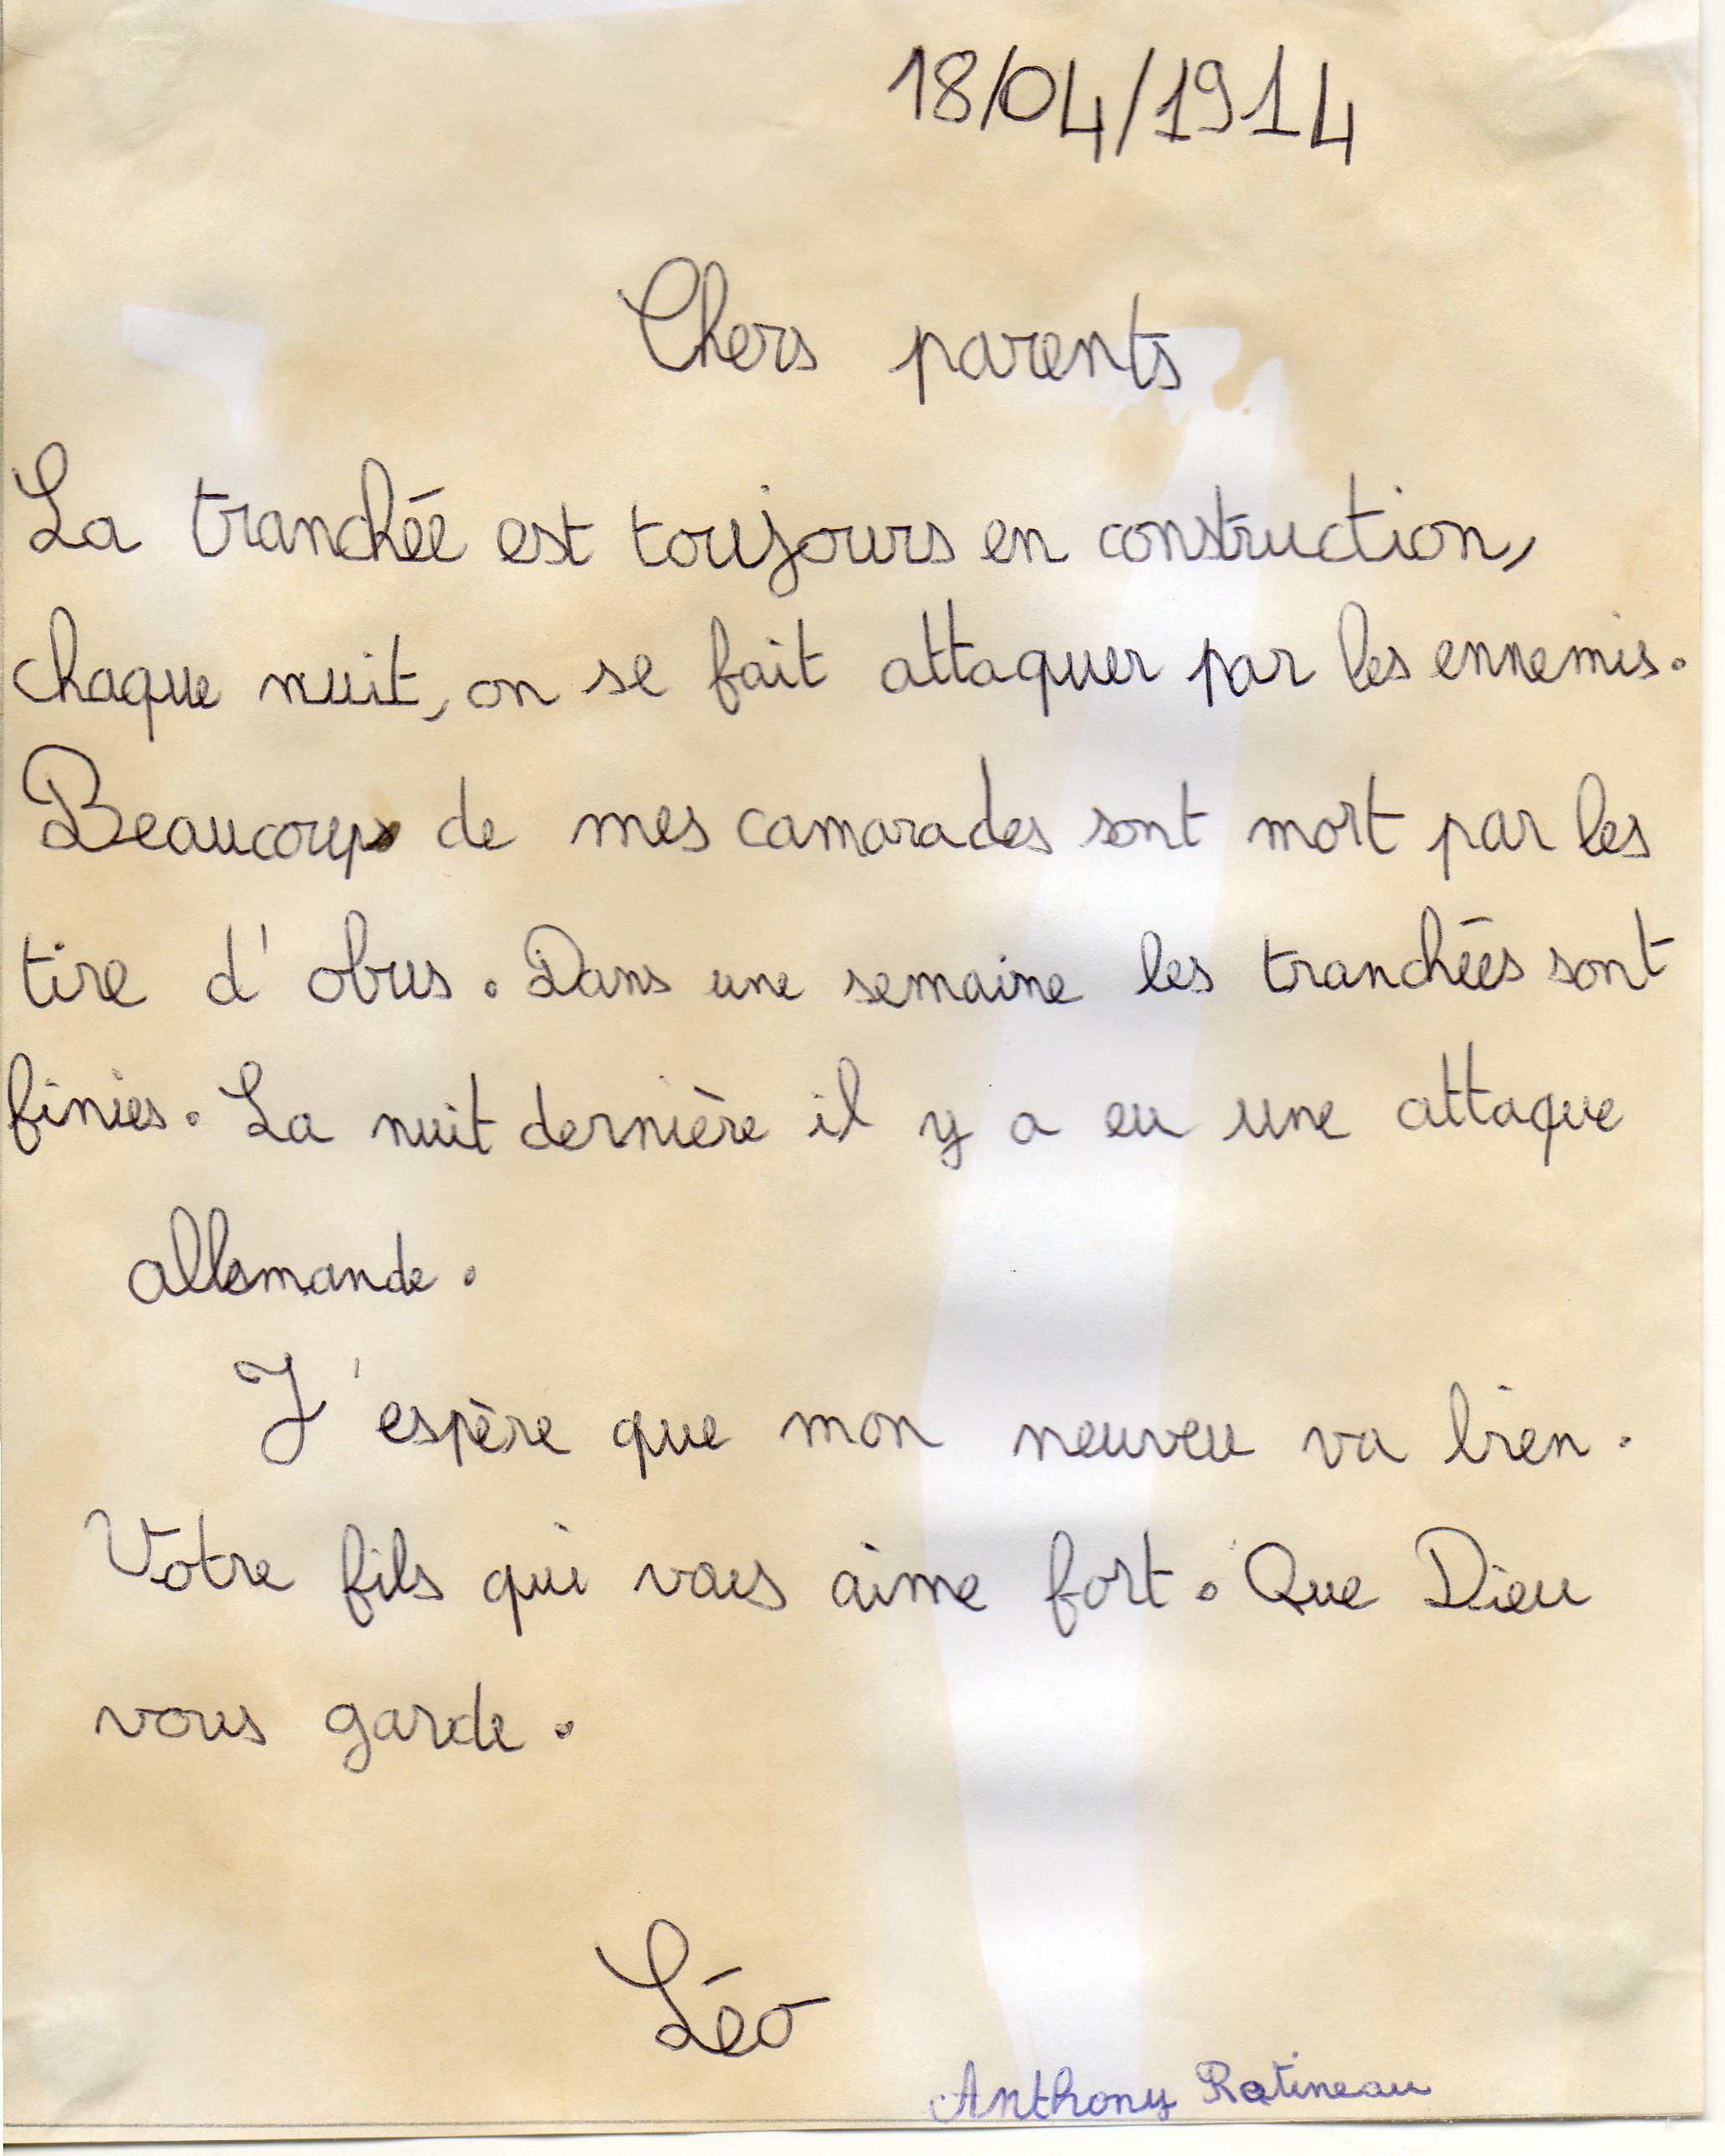 18/04/1914
Chers parents
La tranchée est toujours en construction,
chaque nuit, on se fait attaquer par les ennemis.
Beaucoup de mes camarades sont mort par les
tire d'obus. Dans une semaine les tranchées sont
finies. La nuit dernière il y a eu une attaque
allemande.
J'espère que mon neuveu va bien.
Votre fils qui vous aime fort. Que Dieu
vous garde.
Léo
Anthony Ratineau